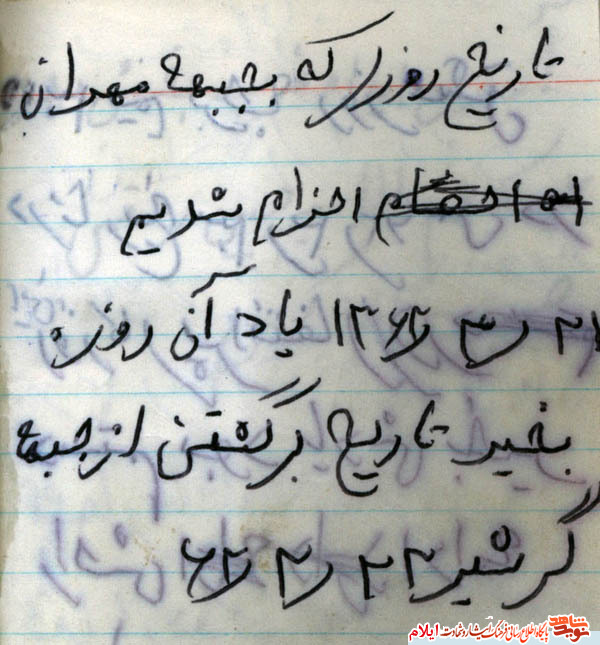 تاریخ روزی که بجبهه مهران
احزام شدیم
۲۱ ر۳ ر۱۳۶۲ یاد آن روزه
بخیر تاریخ برگشتن از جبهه
۲۲ ر۲ ر۶۲
نوید شاهد پایگاه اطلاع رسانی فرهنگ ایثار و شهادت ایلام